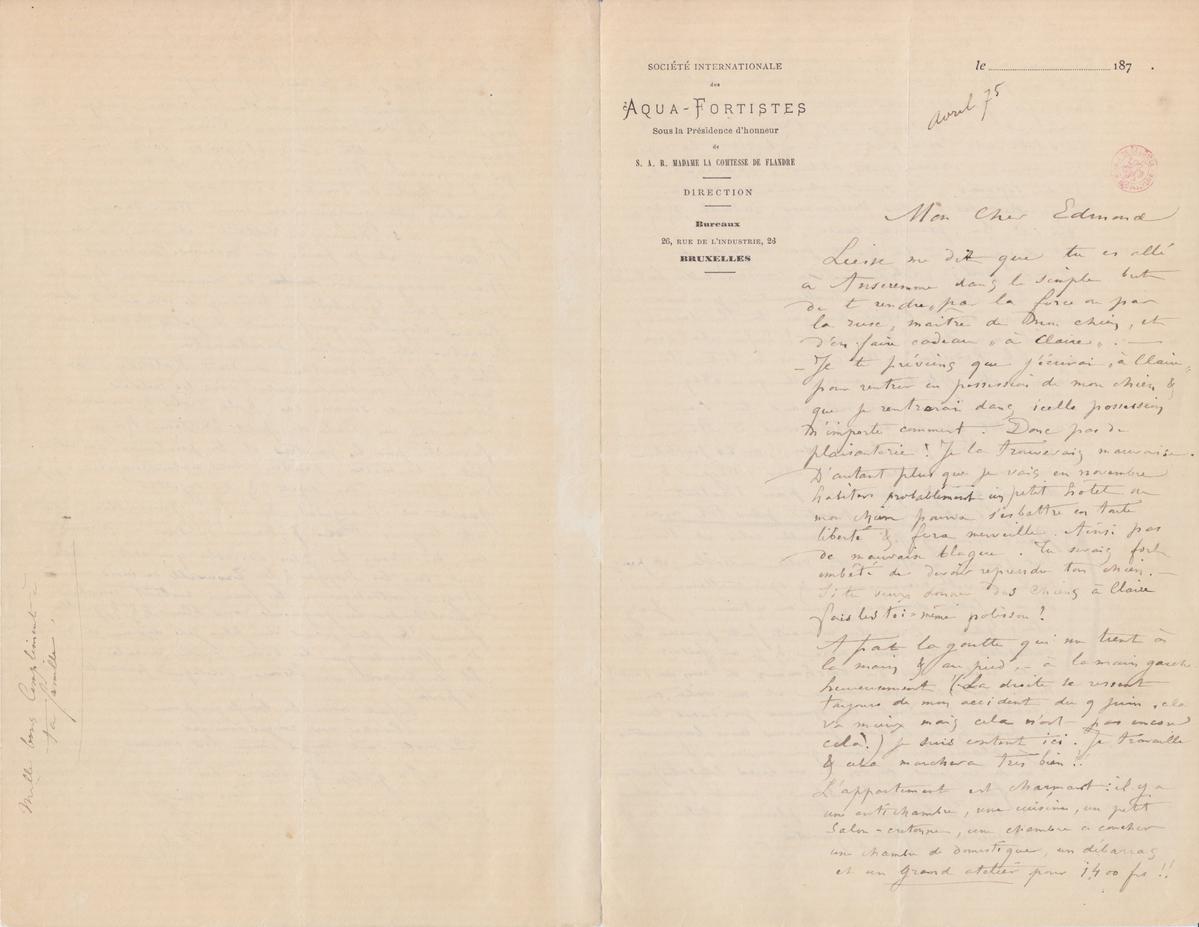 Mille bons Compliments à
ta famille.
SOCIÉTÉ INTERNATIONALE
des
AQUA-FORTISTES
Sous la Présidence d'honneur
de
S. A. R. MADAME LA COMTESSE DE FLANDRE
DIRECTION
Bureaux
26, RUE DE L'INDUSTRIE, 26
BRUXELLES
le 187 .
avril 75
Mon Cher Edmond
me dit que tu es allé
à Anseremme dans le simple but
de te rendre, par la force ou par
la ruse, maître de mon chien, et
d'en faire cadeau « à Claire » . —
– Je te préviens que j'écrirai « à Claire »
pour rentrer en possession de mon chien &
que je rentrerai dans icelle possession
n'importe comment . Donc pas de
plaisanterie ! Je la trouverais mauvaise.
D'autant plus que je vais en novembre
habiter probablement un petit hôtel ou
mon chien pourra s'esbattre en toute
liberté & fera merveille . Ainsi pas
de mauvaise blague . Tu serais fort
embêté de devoir reprendre ton chien. —
Si tu veux donner des chiens à Claire
fais les toi-même polisson !
A part la goutte qui me tient à
la main & au pied, – à la main gauche
heureusement (La droite se ressent
toujours de mon accident du 9 juin, cela
va mieux mais cela n'est pas encore
cela !) je suis content ici . Je travaille
& cela marchera très bien !!
L'appartement est charmant : il y a
une antichambre, une cuisine, un petit
Salon-cretonne, une chambre à coucher
une chambre de domestique, un débarras
et un Grand atelier pour 1400 frs !!